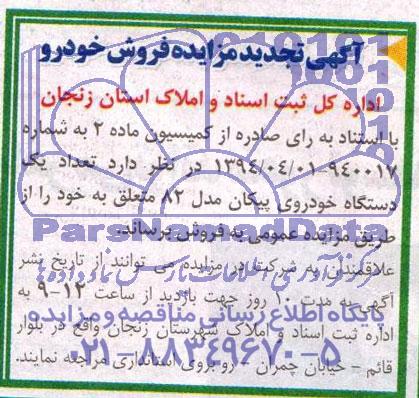 آگهی تجدید مزایده فروش خودرو
اداره کل ثبت اسناد و املاک استان زنجان
با استناد به رای صادره از کمیسیون ماده ۲ به شماره
۱۳۹۴/۰۴/۰۱-۹۴۰۰۱۷ در نظر دارد تعداد یک
دستگاه خودروی پیکان مدل ۸۲ متعلق به خود را از
طریق مزایده عمومی به فروش برساند.
ParsNamadData
علاقمندان به شرکت در مزایده می توانند از تاریخ نشر
آگهی به مدت ۱۰ روز جهت بازدید از ساعت ۱۲-۹ به
پایگاه اطلاع رسانی مناقصه و مزایده
اداره ثبت اسناد و املاک شهرستان زنجان واقع در بلوار
۰۲۱-۸۸۳۴۹۶۷۰-۵
قائم - خیابان چمران - روبروی استانداری مراجعه نمایند.